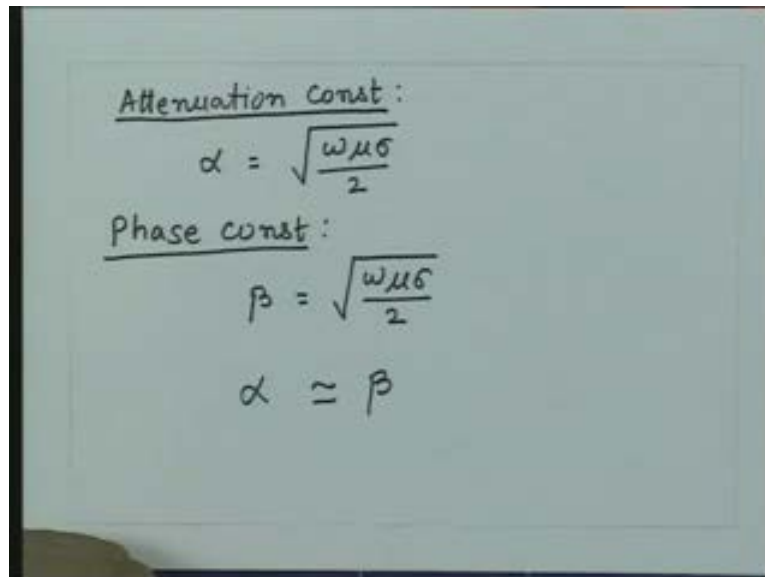 Attenuation Const:
α = √(ωμσ/2)
Phase const:
β = √(ωμσ/2)
α ≃ β